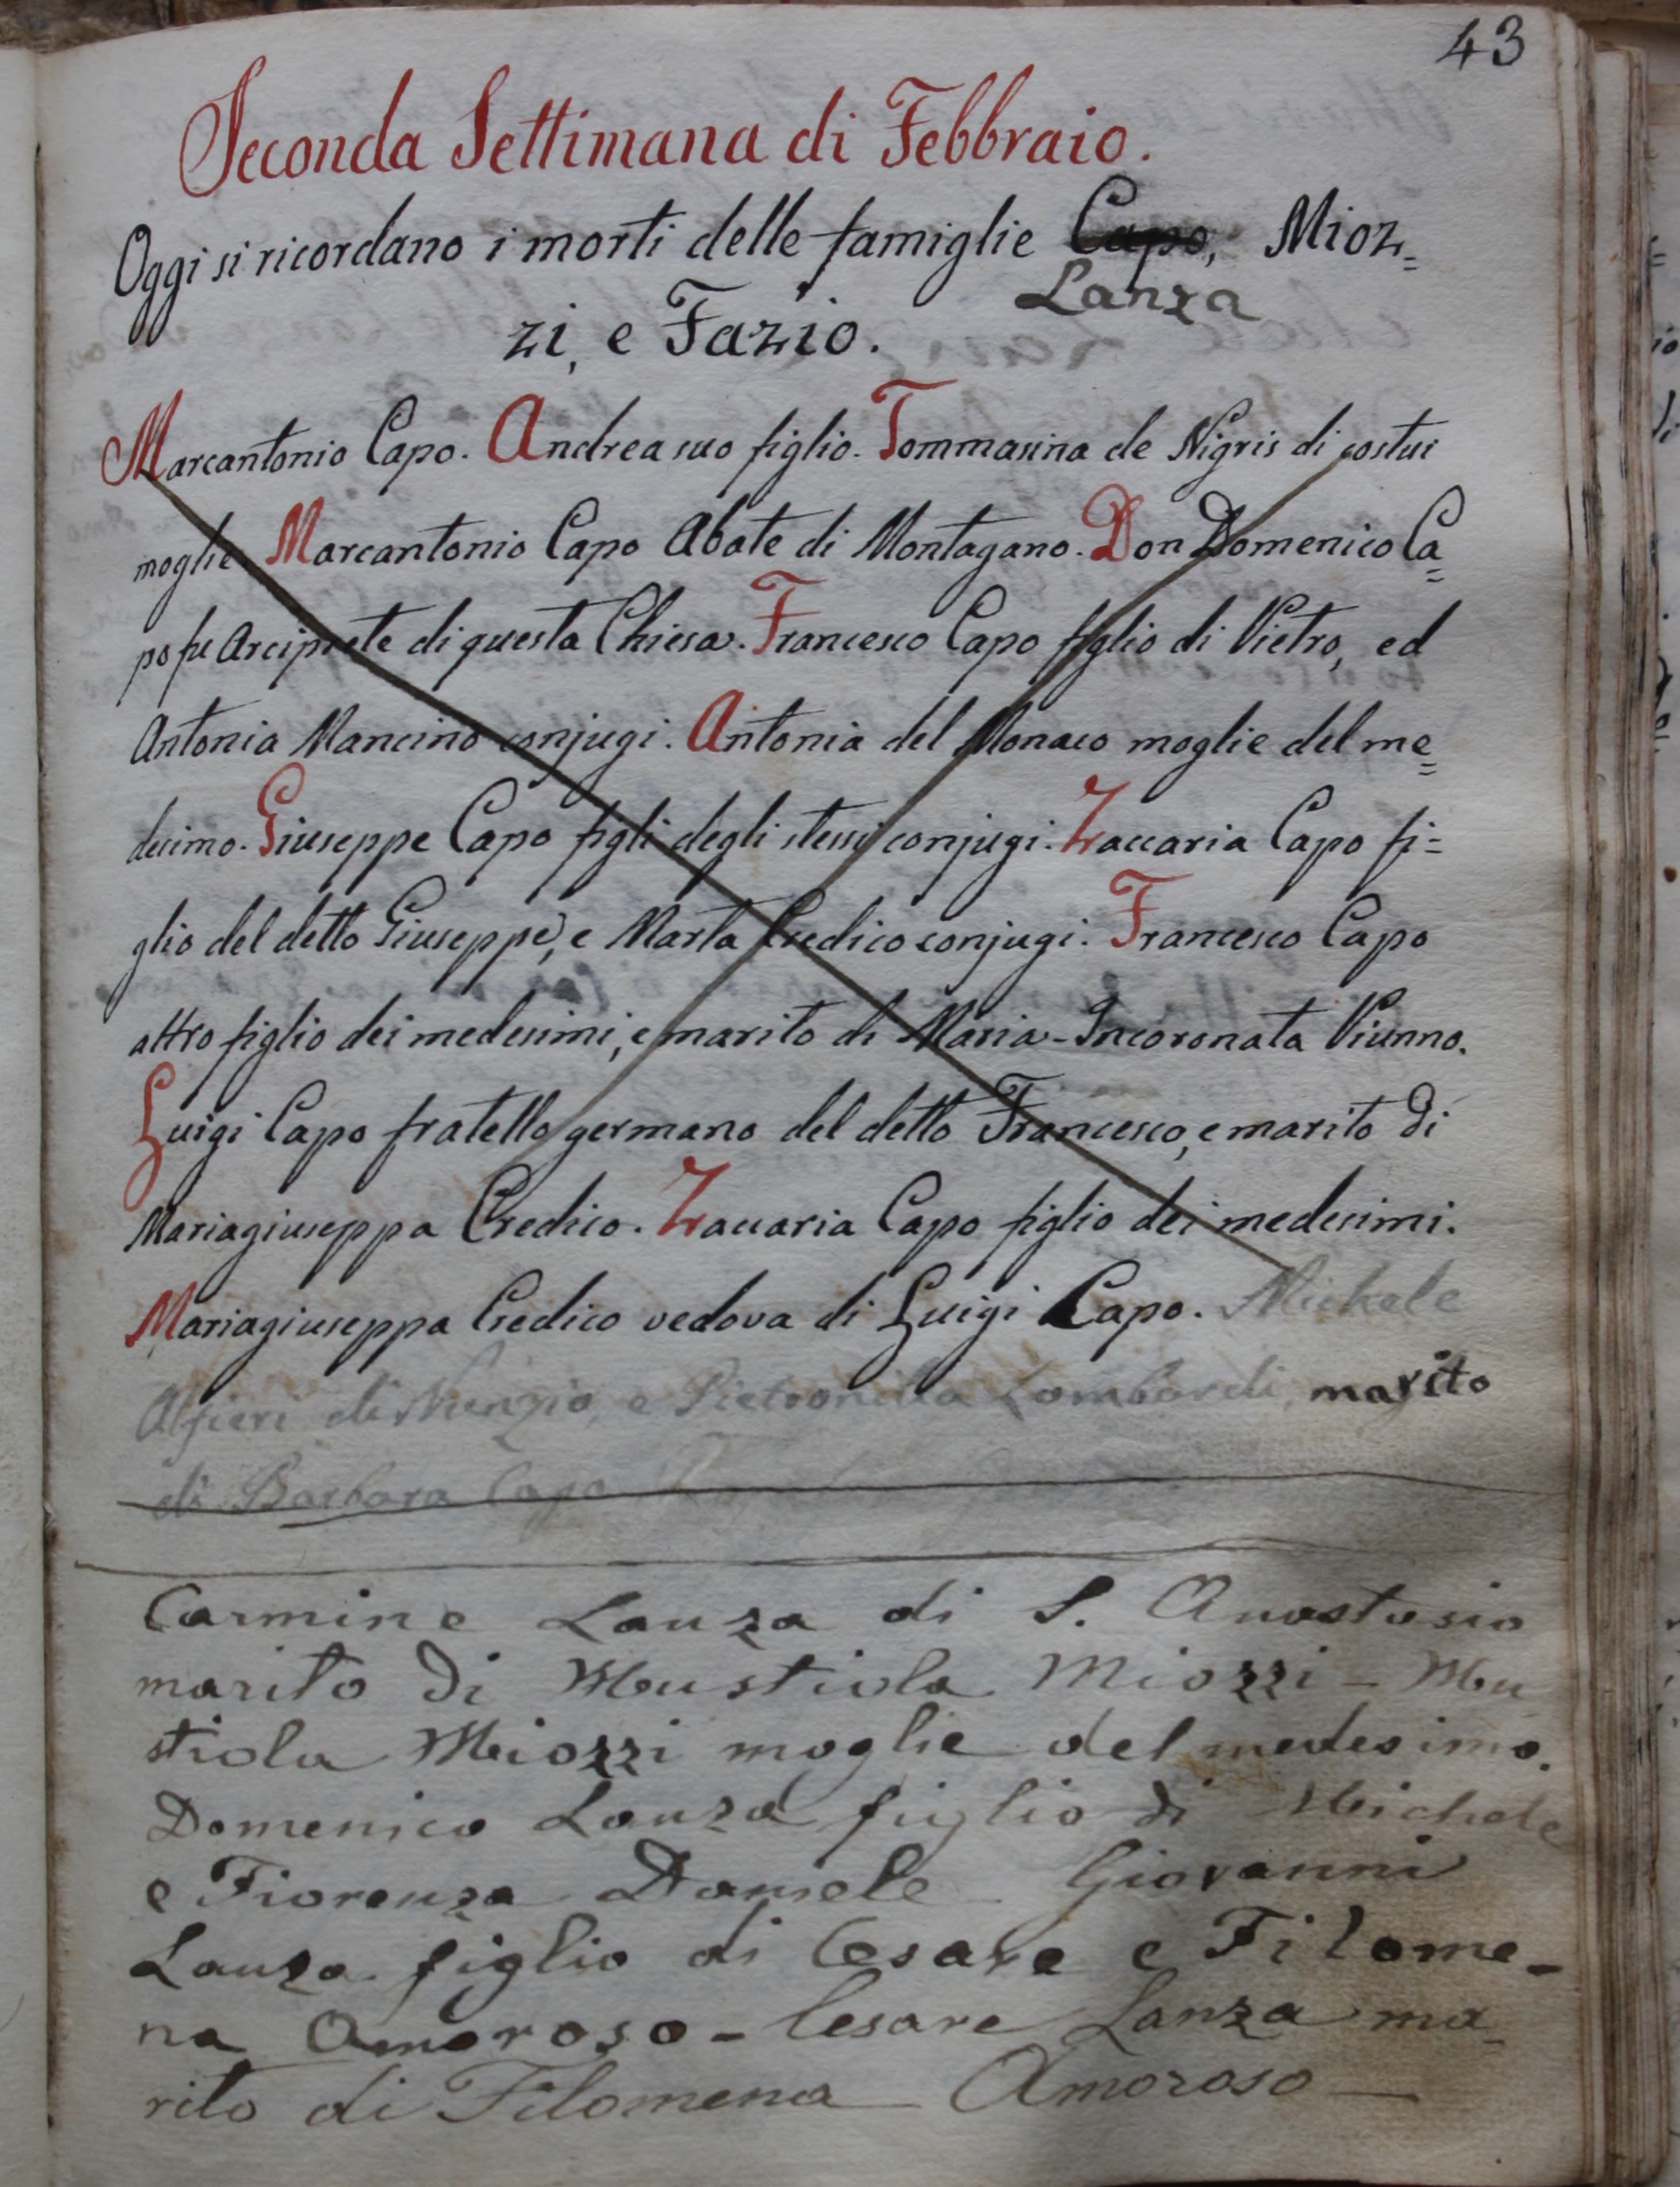 43
Seconda Settimana di Febbraio.
Oggi si ricordano i morti delle famiglie Capo, Mioz=
Lanza
zi, e Fazio.
Marcantonio Capo. Andrea suo figlio. Tommasina de Nigris di costui
moglie Marcantonio Capo Abate di Montagano. Don Domenico Ca=
po fu Arciprete di questa Chiesa. Francesco Capo figlio di Pietro, ed
Antonia Mancino conjugi. Antonia del Monaco moglie del me=
desimo. Giuseppe Capo figli degli stessi conjugi. Zaccaria Capo fi=
glio del detto Giuseppe, e Marta Credico conjugi. Francesco Capo
altro figlio dei medesimi, e marito di Maria-Incoronata Viunno.
Luigi Capo fratello germano del detto Francesco, e marito di
Mariagiuseppa Credico. Zaccaria Capo figlio dei medesimi.
Mariagiuseppa Credico vedova di Luigi Capo. Michele
Alfieri di Nunzio, e Pietronilla Lombardi, marito
di Barbara Capo
Carmine Lanza di S. Anastasio
marito di Mustiola Miozzi - Mu
stiola Miozzi moglie del medesimo.
Domenico Lanza figlio di Michele
e Fiorenza Daniele - Giovanni
Lanza figlio di Cesare e Filome-
na Amoroso - Cesare Lanza ma-
rito di Filomena Amoroso -